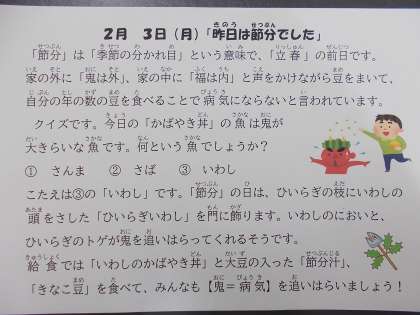 2月 3日(月)「昨日は節分でした」
「節分」は「季節の分かれ目」という意味で、「立春」の前日です。
家の外に「鬼は外」、家の中に「福は内」と声をかけながら豆をまいて、
自分の年の数の豆を食べることで病気にならないと言われています。
クイズです。今日の「かばやき丼」の魚は鬼が
大きらいな魚です。何という魚でしょうか?
① さんま ② さば ③ いわし
こたえは③の「いわし」です。「節分」の日は、ひいらぎの枝にいわしの
頭をさした「ひいらぎいわし」を門に飾ります。いわしのにおいと、
ひいらぎのトゲが鬼を追いはらってくれるそうです。
給食では「いわしのかばやき丼」と大豆の入った「節分汁」、
「きなこ豆」を食べて、みんなも【鬼=病気】を追いはらいましょう!